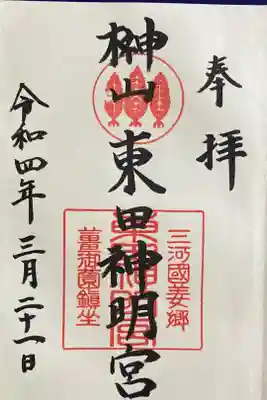 奉拝
榊山 東田神明宮
三河國姜郷
薑御園鎮坐
令和四年三月二十一日